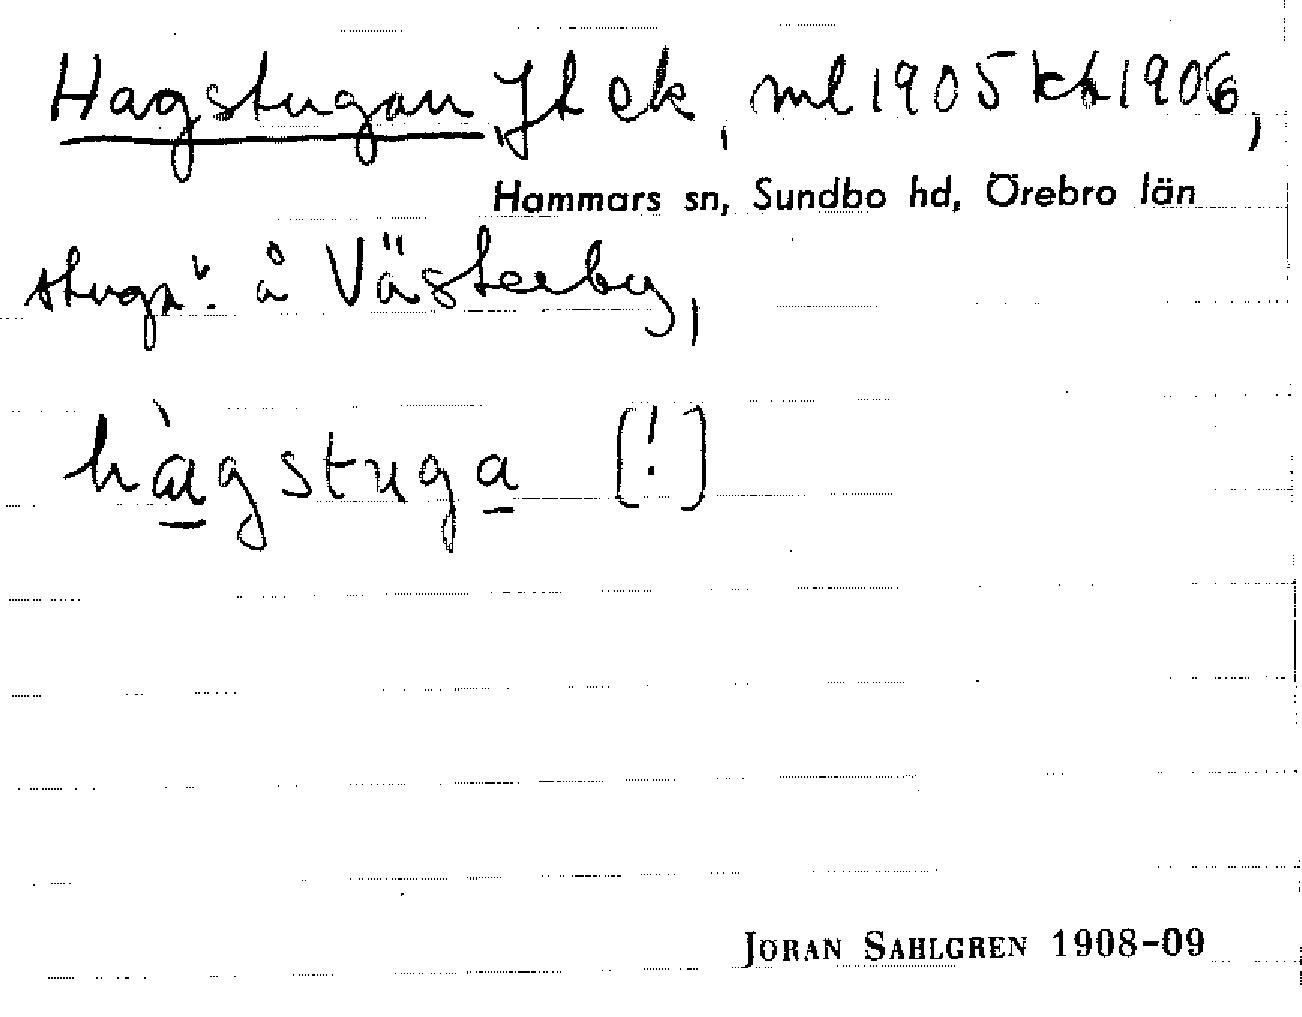 Hagstugan Jt ek, ml 1905 kh 1906,
Hammars sn, Sundbo hd, Örebro län
å Västerby,
hàgstuga [!]
JORAN SAHLGREN 1908-09